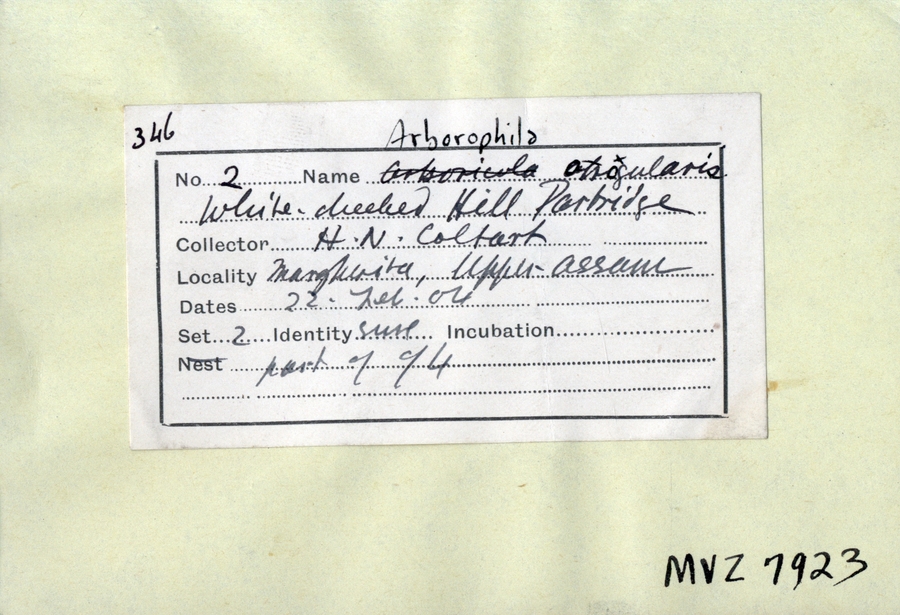 346
Arborophila
No. 2 Name Arboricola atrogularis
White-cheeked Hill Partridge
Collector H. N. Coltart
Locality Margherita, Upper Assam
Dates 22. Feb. 04
Set 2 Identity sure Incubation
Nest part of 9/4
MVZ 7923